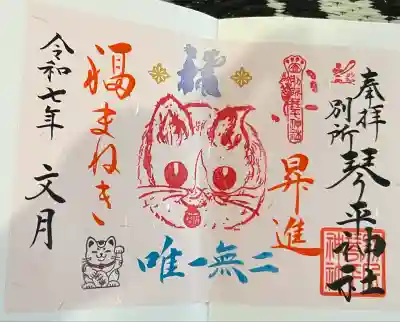 奉拝
別所
琴平神社
昇進
唯一無二
福まねき
令和七年
文月